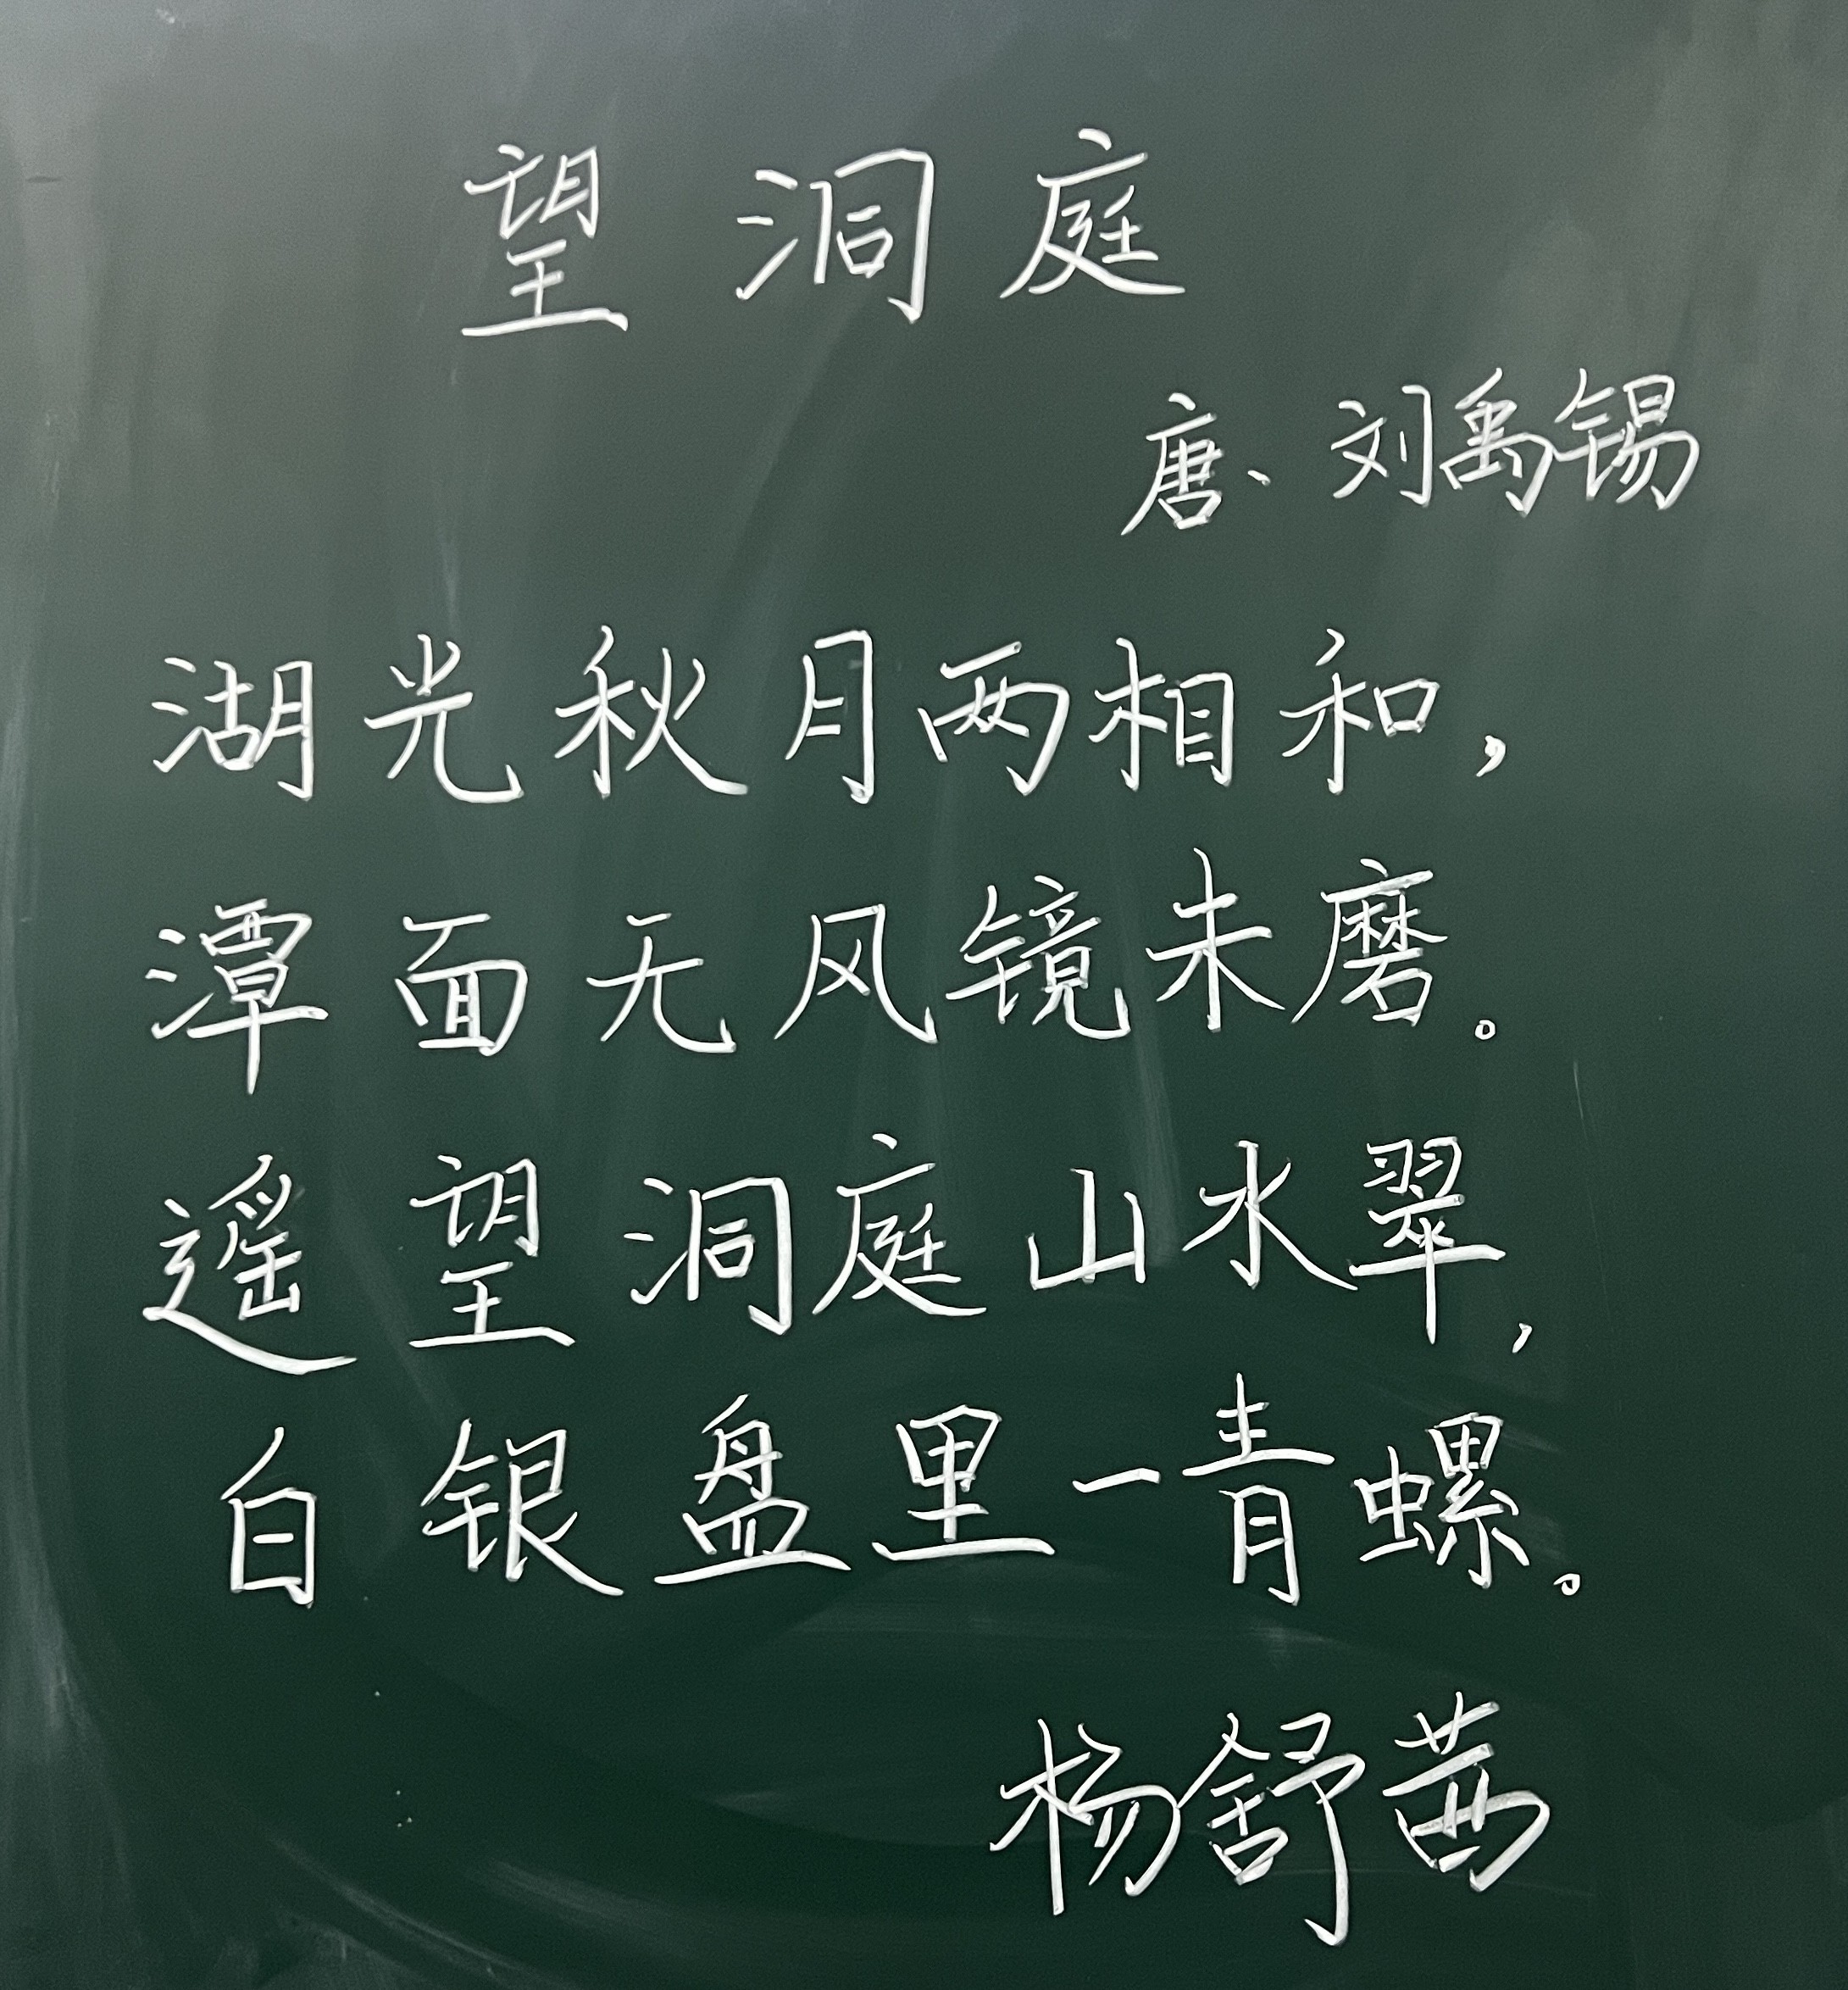 望洞庭
唐、刘禹锡
湖光秋月两相和,
潭面无风镜未磨。
遥望洞庭山水翠,
白银盘里一青螺。
杨舒茜